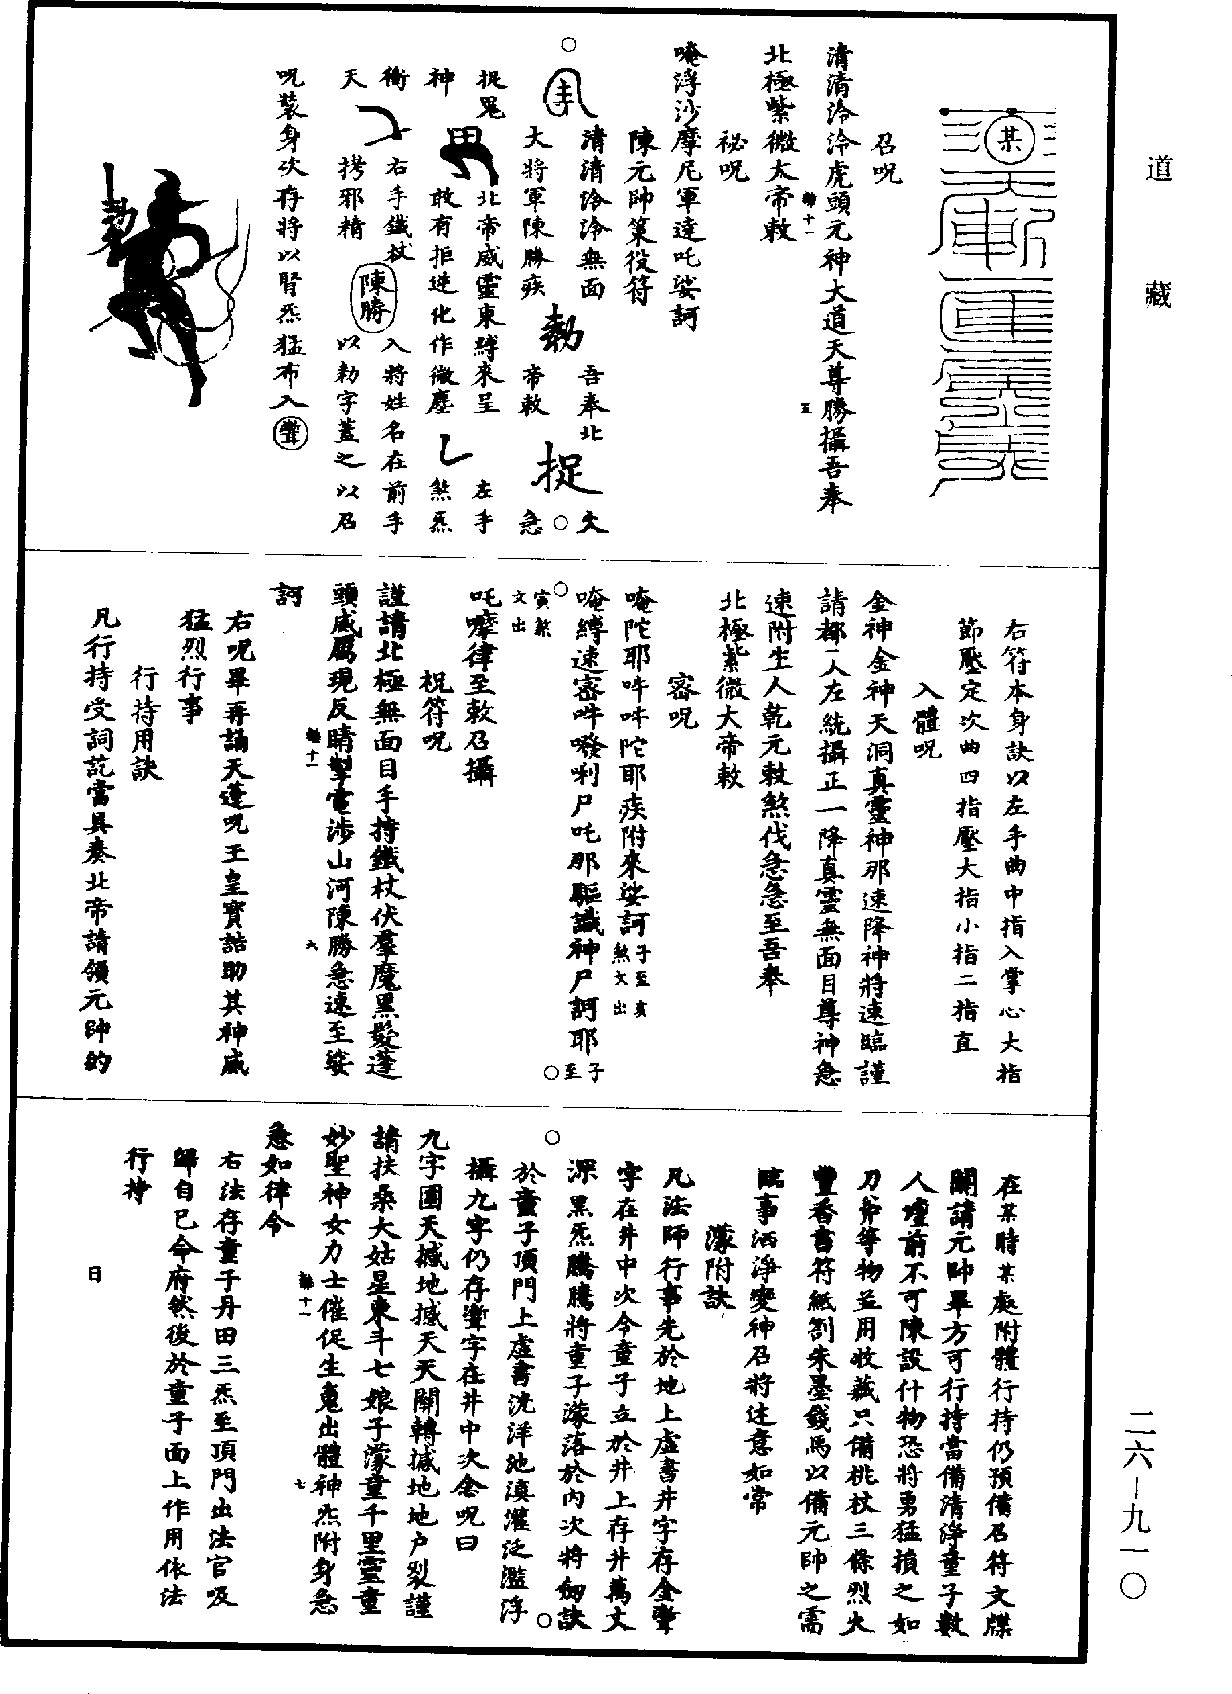 道藏
某
召呪
清清泠泠虎頭元神大道天尊勝攝吾奉
北極紫微大帝敕
祕呪
唵浮沙摩尼軍達吒娑訶
陳元帥策役符
清清泠泠無面 吾奉北
大將軍陳勝疾 勅 帝敕 捉 急
捉鬼 北帝威靈東縛來呈 左手
神 敢有拒逆化作微塵 煞炁
衝 右手鐵杖 陳勝 入將姓名在前手
天 拷邪精 以勅字蓋之以召
呪裝身次存將以腎炁猛布入魙
勅
右符本身訣以左手曲中指入掌心大指
節壓定次曲四指壓大指小指二指直
入體呪
金神金神天洞真靈神那速降神將速臨謹
請都一人左統攝正一降真靈無面目尊神急
速附生人乾元敕煞伐急急至吾奉
北極紫微大帝敕
密呪
唵陀耶吽吽陀耶疾附來娑訶子至亥煞文出
唵縛速密吽㗶唎尸吒那驅讖神尸訶耶子至
寅煞文出
吒嚤律至敕召攝
祝符呪
謹請北極無面目手持鐵杖伏羣魔黑髮蓬
頭威厲現反睛掣電涉山河陳勝急速至娑
訶
右呪畢再誦天蓬呪玉皇寶誥助其神威
猛烈行事
行持用訣
凡行持受詞訖當具奏北帝請領元帥的
在某時某處附體行持仍預備召符文牒
關請元帥畢方可行持當備清淨童子數
人壇前不可陳設什物恐將勇猛損之如
刀斧等物並用收藏只備桃杖三條烈火
豐香書符紙劄朱墨錢馬以備元帥之需
臨事洒淨變神召將注意如常
濛附訣
凡法師行事先於地上虛書井字存金魙
字在井中次令童子立於井上存井萬丈
深黑炁騰騰將童子濛落於內次將劒訣
於童子頂門上虛書洸洋池滇灌泛濫浮
攝九字仍存魙字在井中次念呪曰
九字團天撼地撼天天關轉撼地地户裂謹
請扶桑大姑星東斗七娘子濛童千里靈童
妙聖神女力士催促生䰟出體神炁附身急
急如律令
右法存童子丹田三炁至頂門出法官吸
歸自己命府然後於童子面上作用依法
行持
日
二六—九一〇